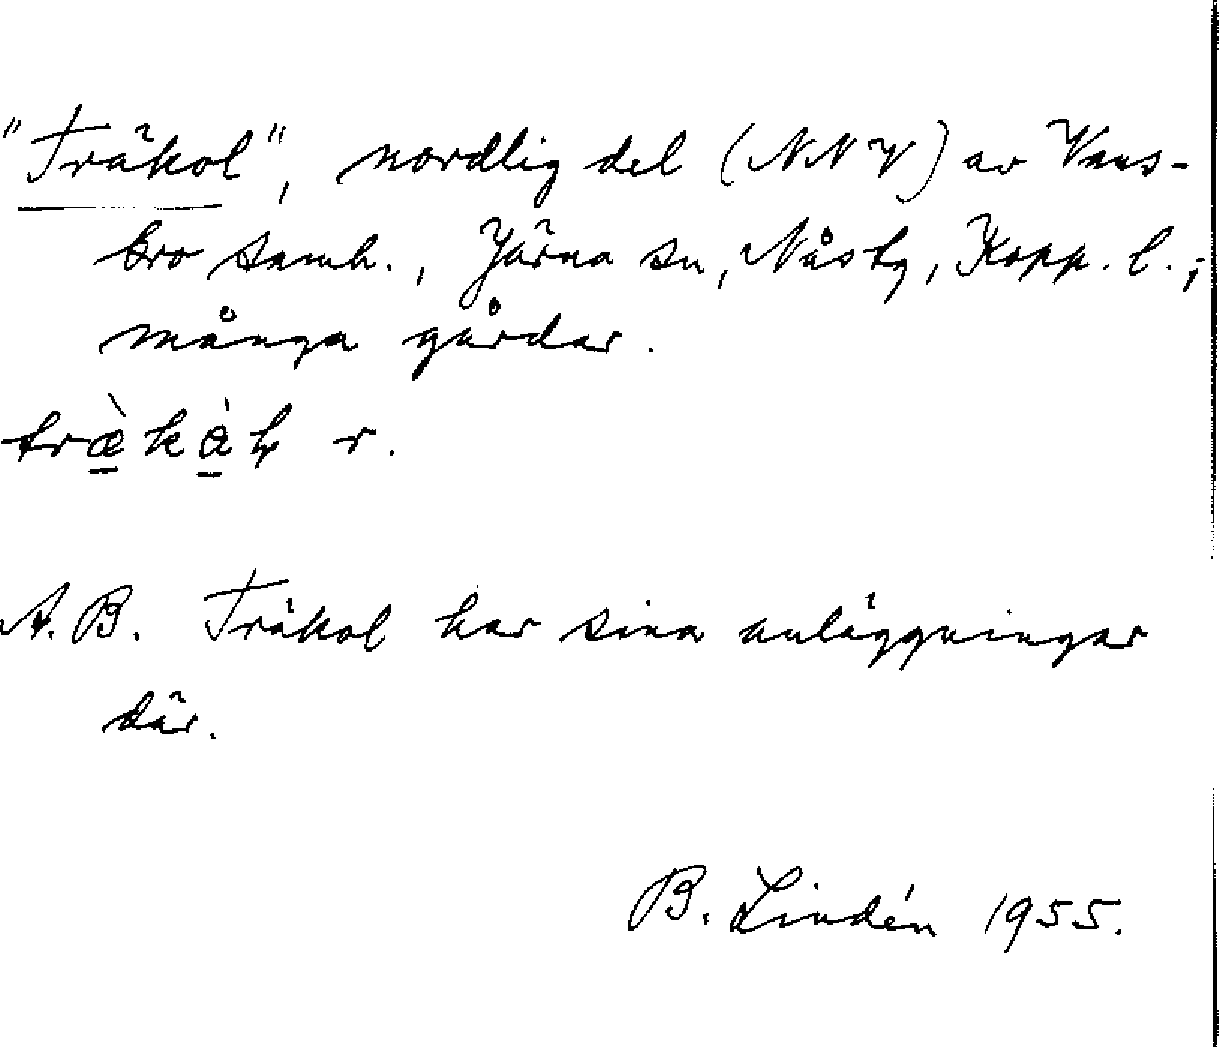 "Träkol", nordlig del (NNV) av Vans-
bro samh., Järna sn, Nås tg, Kopp. l.;
många gårdar.
r.
A.B. Träkol har sina anläggningar
där.
B. Lindén 1955.